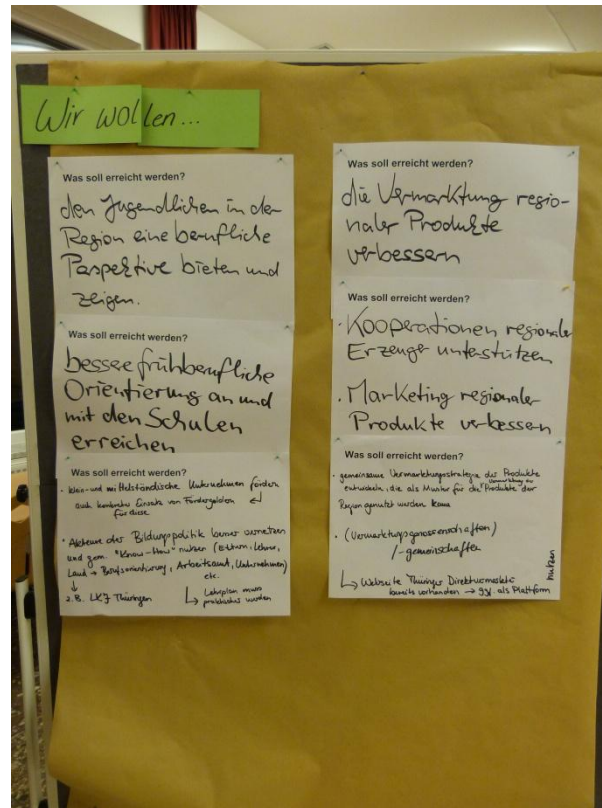 Wir wollen...
Was soll erreicht werden?
den Jugendlichen in der
Region eine berufliche
Perspektive bieten und
zeigen.
Was soll erreicht werden?
bessere frühberufliche
Orientierung an und
mit den Schulen
erreichen
Was soll erreicht werden?
· klein- und mittelständische Unternehmen fördern
auch konkreter Einsatz von Fördergeldern
für diese
· Akteure der Bildungspolitik besser vernetzen
und gem. "Know-How" nutzen (Eltern, Lehrer,
Land → Berufsorientierung, Arbeitsamt, Unternehmen)
etc.
↓
z.B. LKJ Thüringen
↳ Lehrplan muss
praktischer werden
Was soll erreicht werden?
die Vermarktung regio-
naler Produkte
verbessern
Was soll erreicht werden?
· Kooperationen regionaler
Erzeuger unterstützen
· Marketing regionaler
Produkte verbessern
Was soll erreicht werden?
· gemeinsame Vermarktungsstrategie der Produkte
entwickeln, die als Muster für die Vermarktung der Produkte der
Region genutzt werden kann
· (Vermarktungsgenossenschaften)
/-gemeinschaften
↳ Webseite Thüringer Direktvermarkter
bereits vorhanden → ggf. als Plattform
nutzen